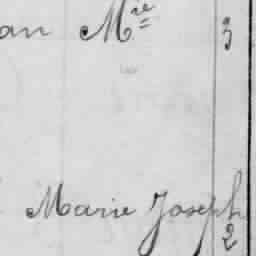 an Mre 3
Marie Joseph
2